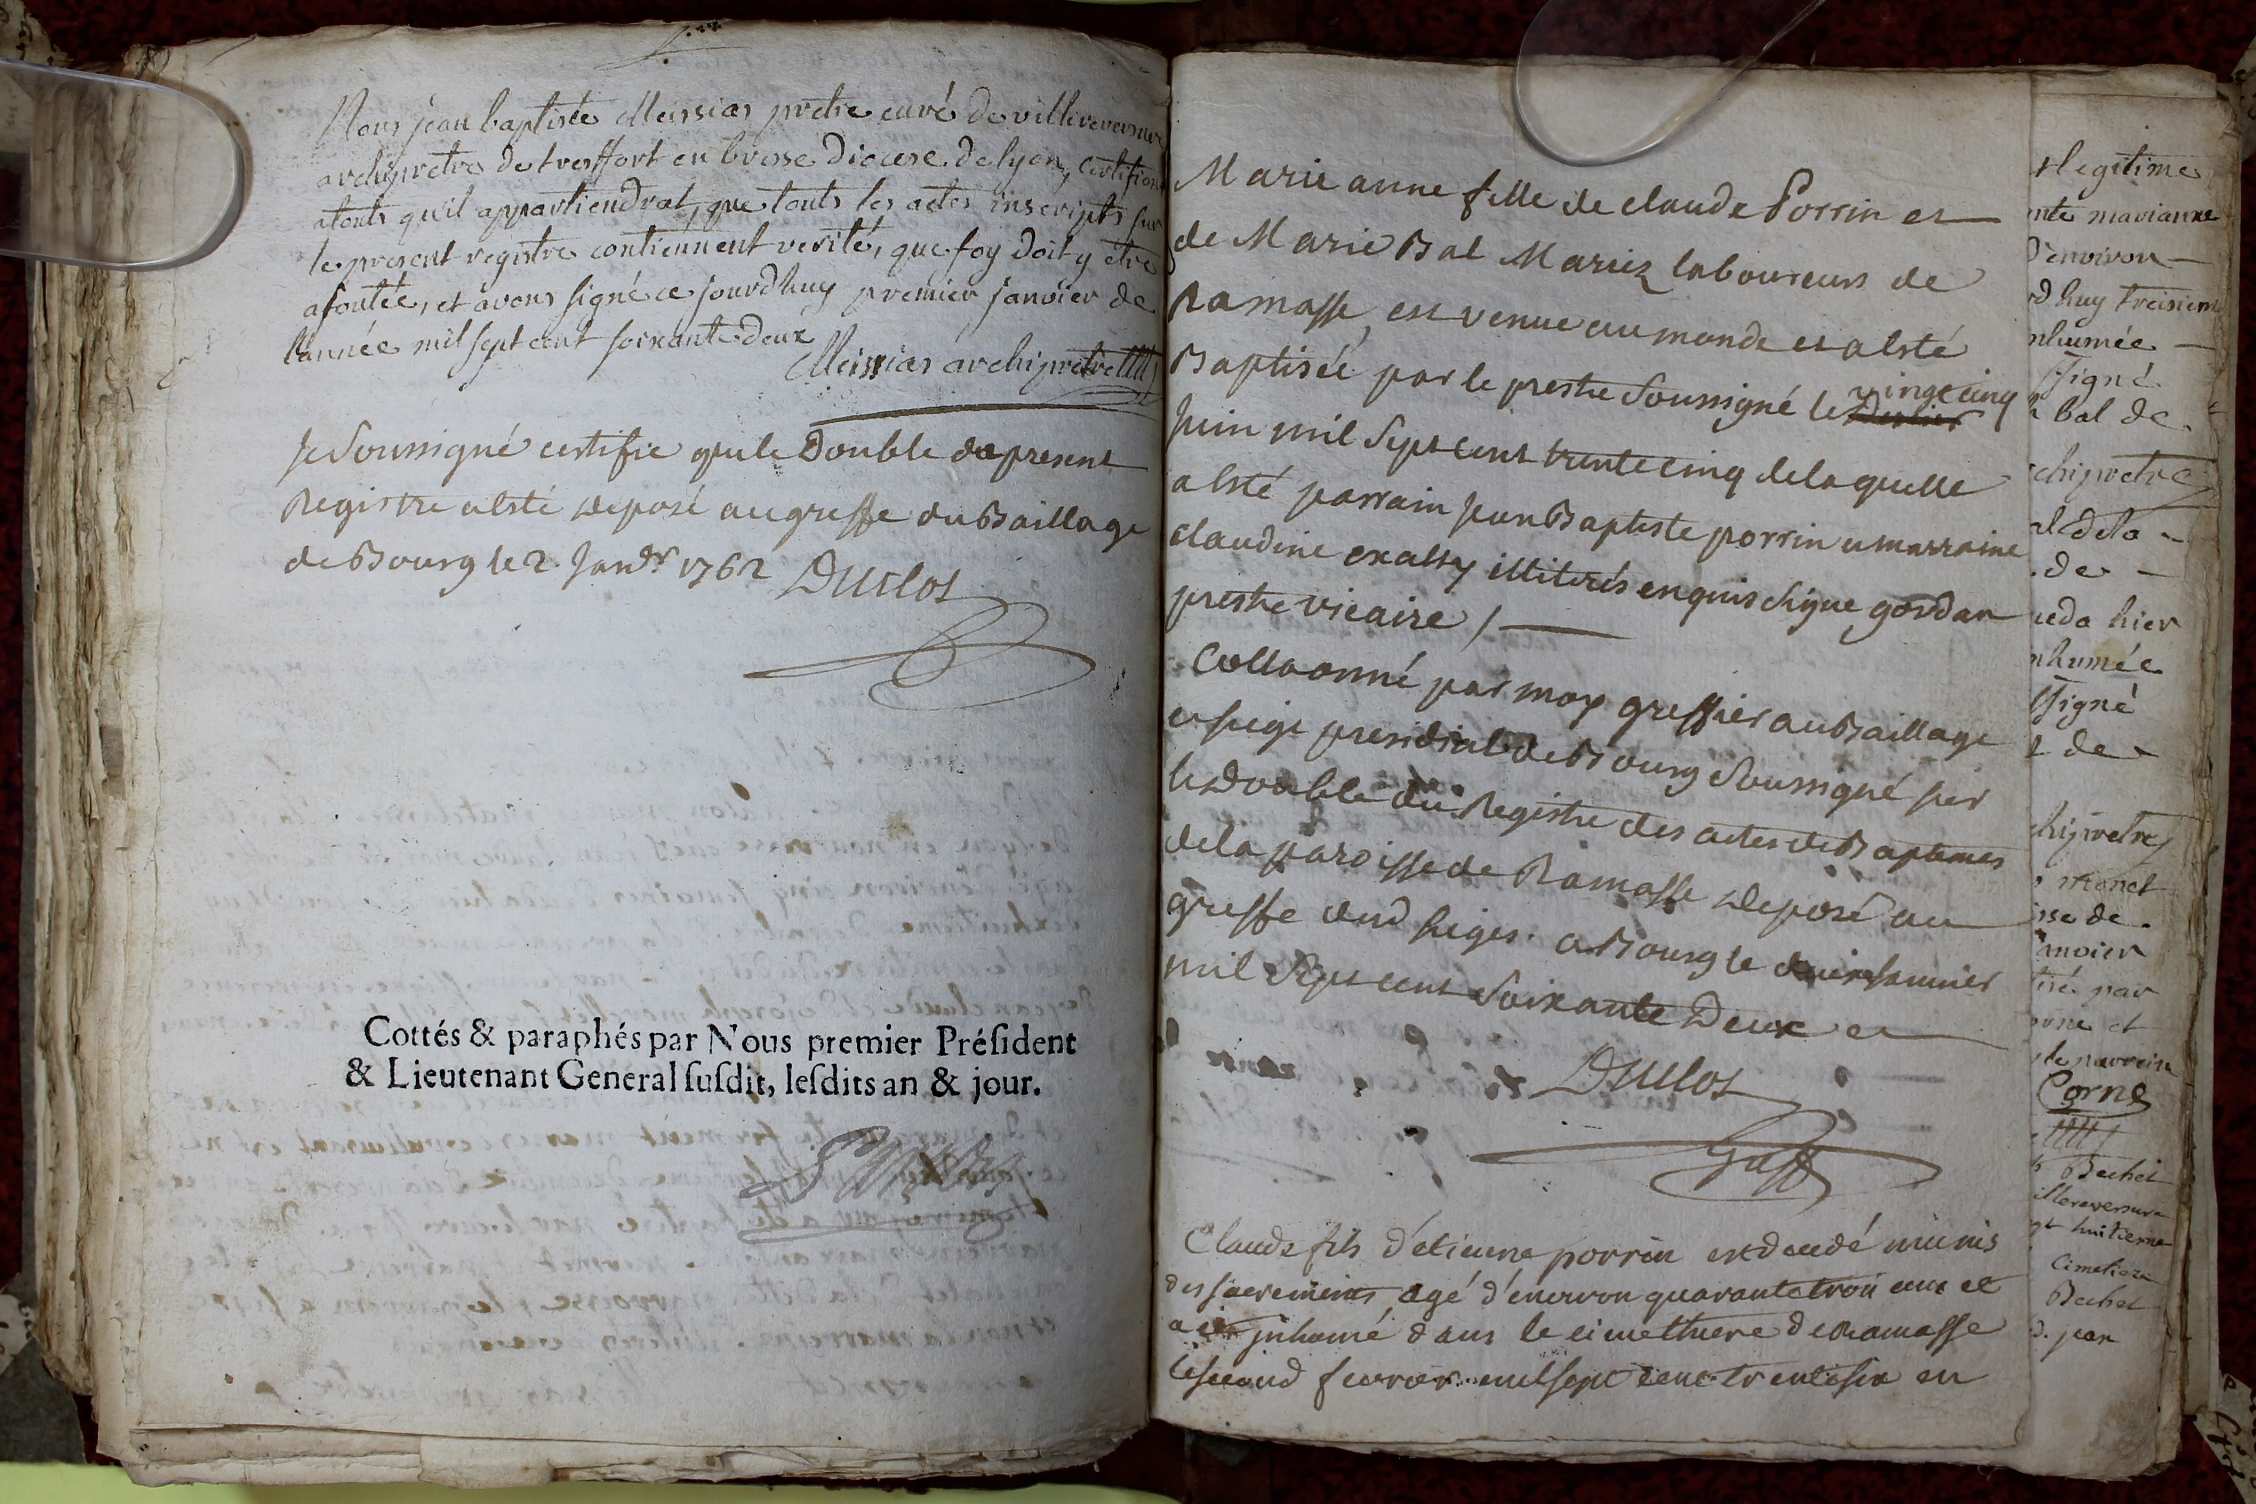 Nous jean baptiste Messias pretre curé de villereversure
archipretre de treffort en bresse Diocese de lyon, certifions
a touts qu'il appartiendrat, que touts les actes inscripts sur
le present registre contiennent verité, que foy doit y être
ajoutée, et avons signé ce jourdhuy premier janvier de
l'année mil sept cent soixante deux
Messias archipretre
Je soussigné certifie que le Double du present
Registre a esté deposé au greffe du Baillage
de Bourg le 2. Janvr 1762 Duclos
Cottés & paraphés par Nous premier Préſident
& Lieutenant General ſuſdit, leſdits an & jour.
Marie anne fille de claude Porrin et
de Marie Bal Mariez laboureurs de
Ramasse, est venue au monde et a esté
Baptisée par le prestre soussigné le vingt cinq
juin mil sept cent trente cinq de laquelle
a esté parrain jean Baptiste porrin et marraine
claudine illiterés enquis signé gordan
prestre vicaire /
Collaonné par moy greffier au Baillage
et siege presidial de Bourg soussigné sur
le Double du Registre des actes de Baptemes
de la paroisse de Ramasse deposé au
greffe dud siege. a Bourg le deux janvier
mil sept cent soixante Deux et
Duclos
Greff
Claude fils d'étienne porrin est decedé munis
des sacrements agé d'environ quarante trois ans et
a été inhumé dans le cimethiere de Ramasse
le second fevrier mil sept cent trente six en
legitime
marianne
d'environ
d huy treisieme
inhumée
signé
bal de
archipretre
de la
de
hier
inhumée
signé
de
archipretre
monet
de
janvier
par
et
le parrein
Corne
Bechet
villereversure
huitieme
Cimetiere
Bechet
par